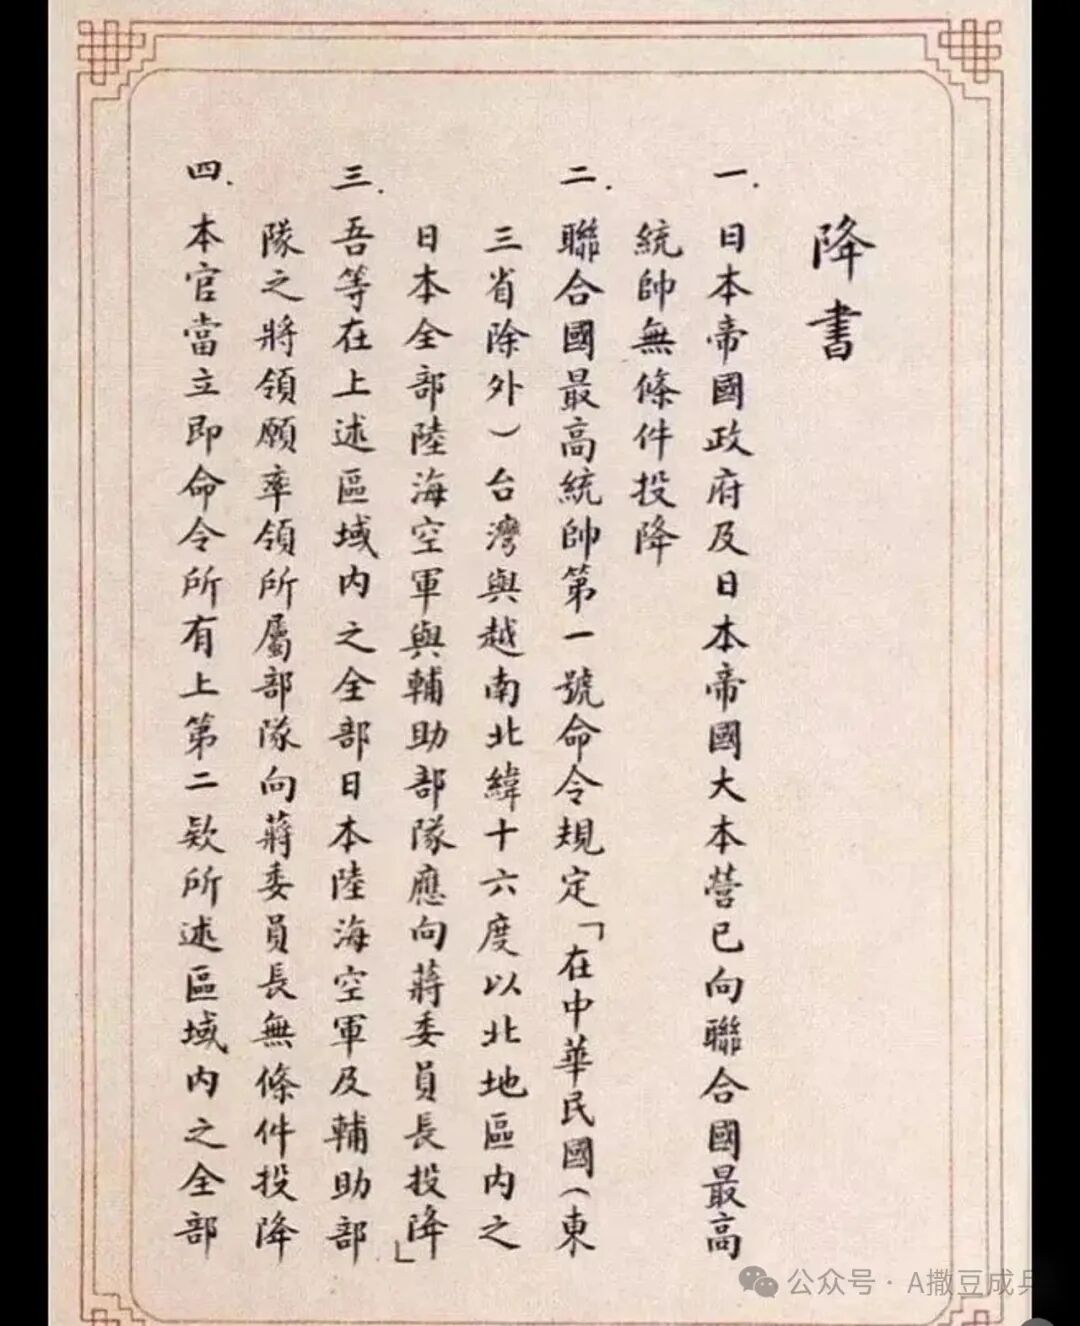 降書
一．日本帝國政府及日本帝國大本營已向聯合國最高
統帥無條件投降
二．聯合國最高統帥第一號命令規定「在中華民國（東
三省除外）台灣與越南北緯十六度以北地區内之
日本全部陸海空軍與輔助部隊應向蔣委員長投降」
三．吾等在上述區域内之全部日本陸海空軍及輔助部
隊之將領願率領所屬部隊向蔣委員長無條件投降
四．本官當立即命令所有上第二款所述區域内之全部
公众号 · A撒豆成兵